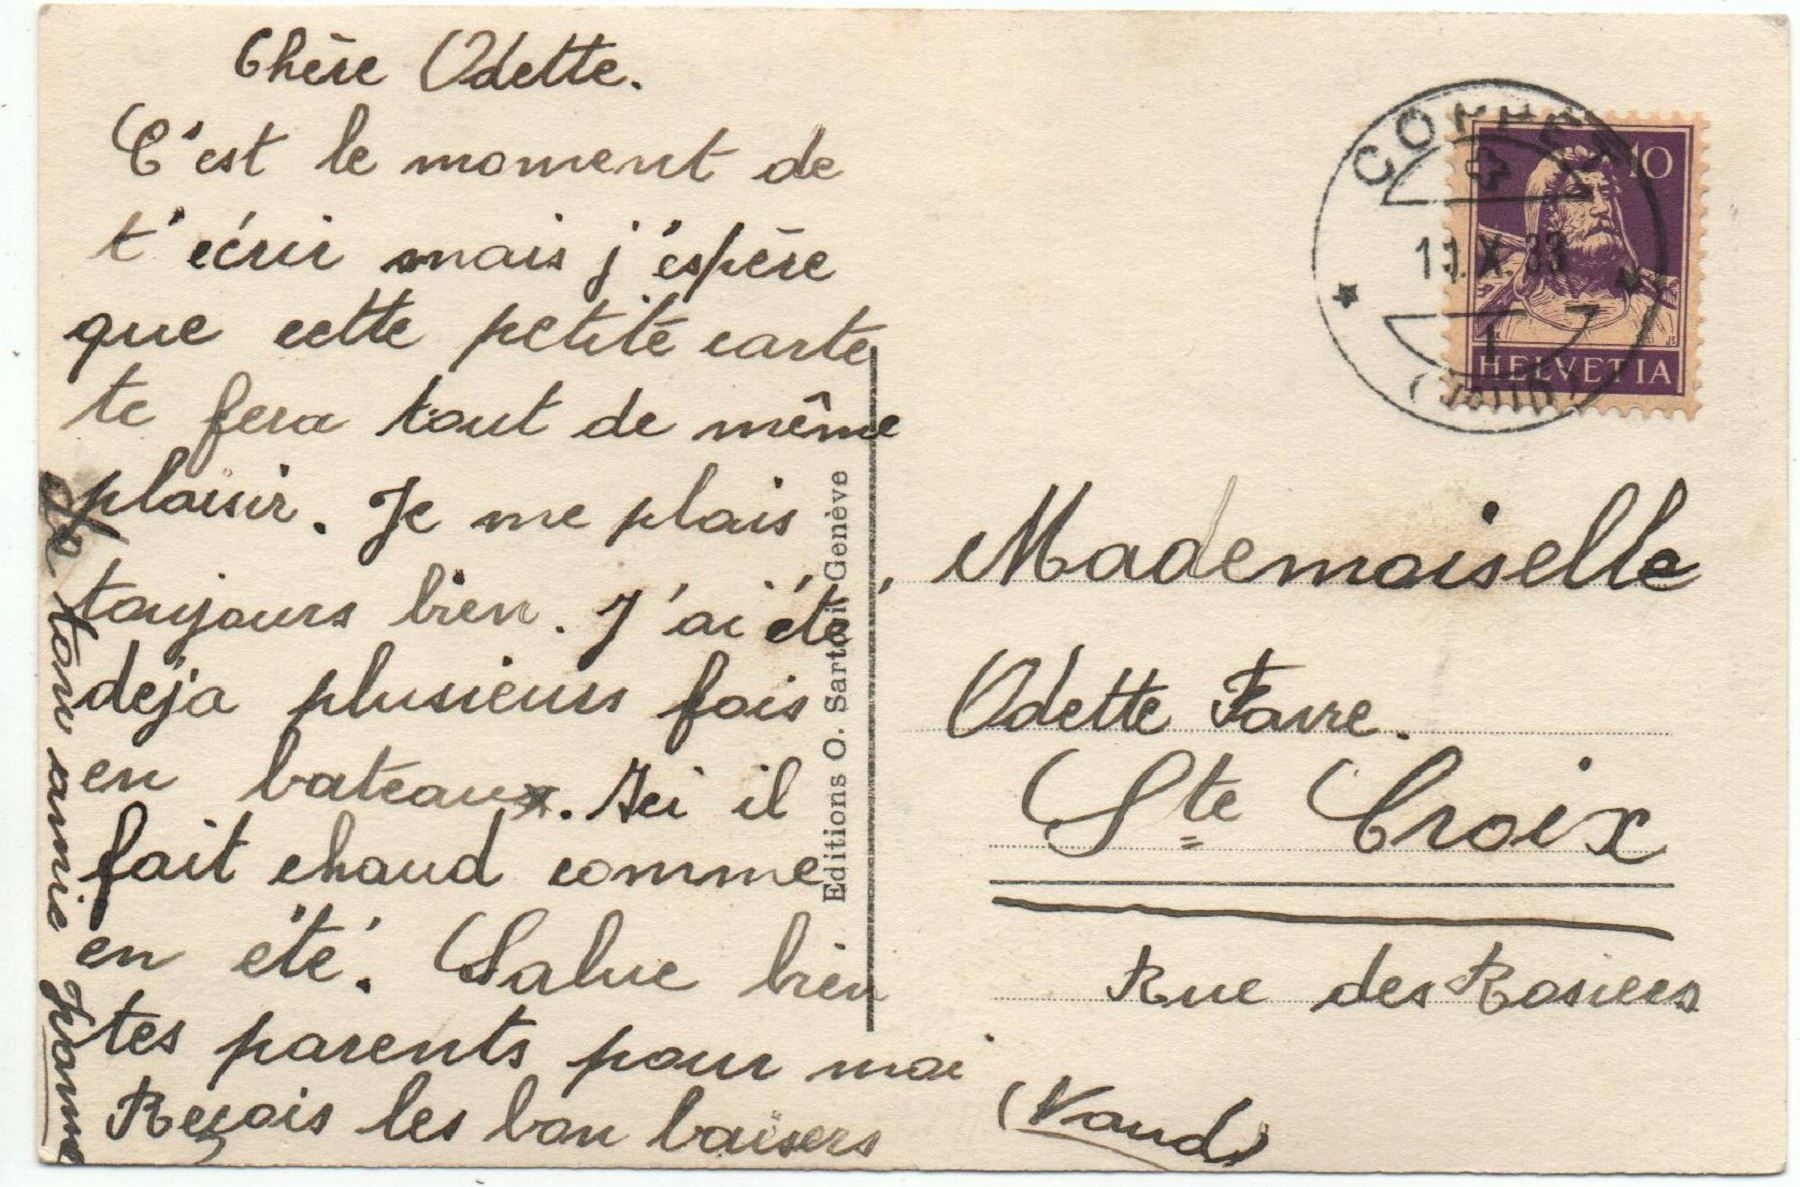 Chère Odette.
C'est le moment de
t'écrir mais j'espère
que cette petite carte
te fera tout de même
plaisir. Je me plais
toujours bien. J'ai été
déja plusieurs fois
en bateaux. Ici il
fait chaud comme
en été. Salue bien
tes parents pour moi
Reçois les bon baisers
de ton amie
Editions O. Sartori, Genève
COPPET
11.X.33
1
(Vaud)
10
HELVETIA
Mademoiselle
Odette Favre.
Ste Croix
Rue des Rosiers
(Vaud)